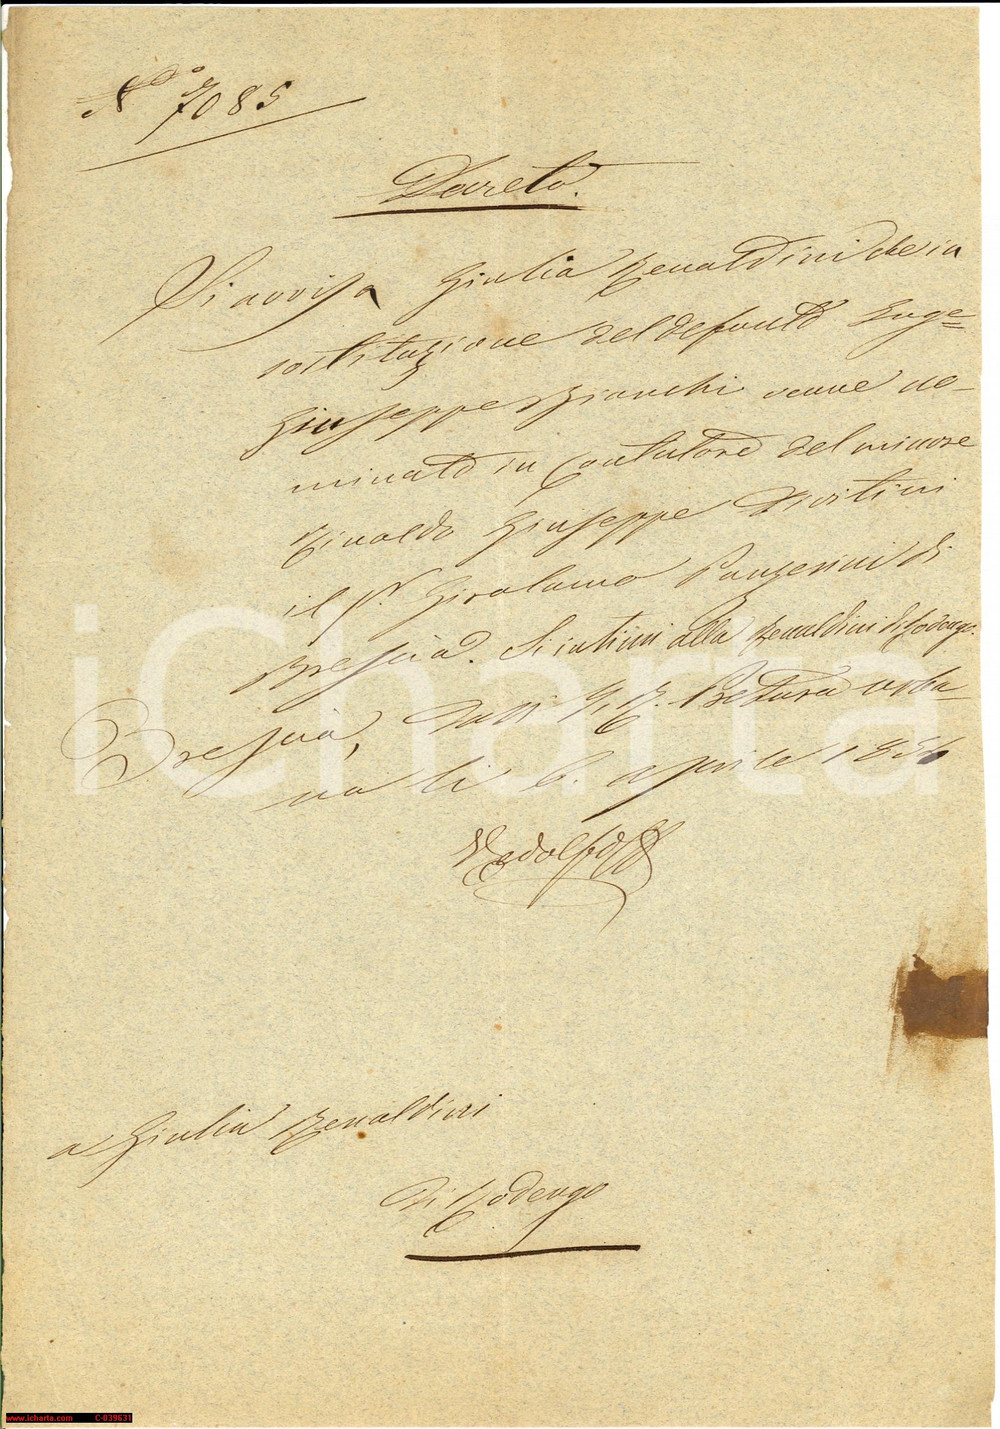 N° 7085
Decreto.
Si avvisa Giulia Renaldini che in
sostituzione del defonto Inge=
Giuseppe Bianchi venne no-
minato in Contutore del minore
Rinaldo Giuseppe Divitini
il Sr. Girolamo Panzerini di
Brescia. Si intimi alla Renaldini di Rodengo.
Brescia, Dall' I. R. Pretura urba-
na li 6. aprile 1856
a Giulia Renaldini
di Rodengo
iCharta
www.icharta.com C-039631